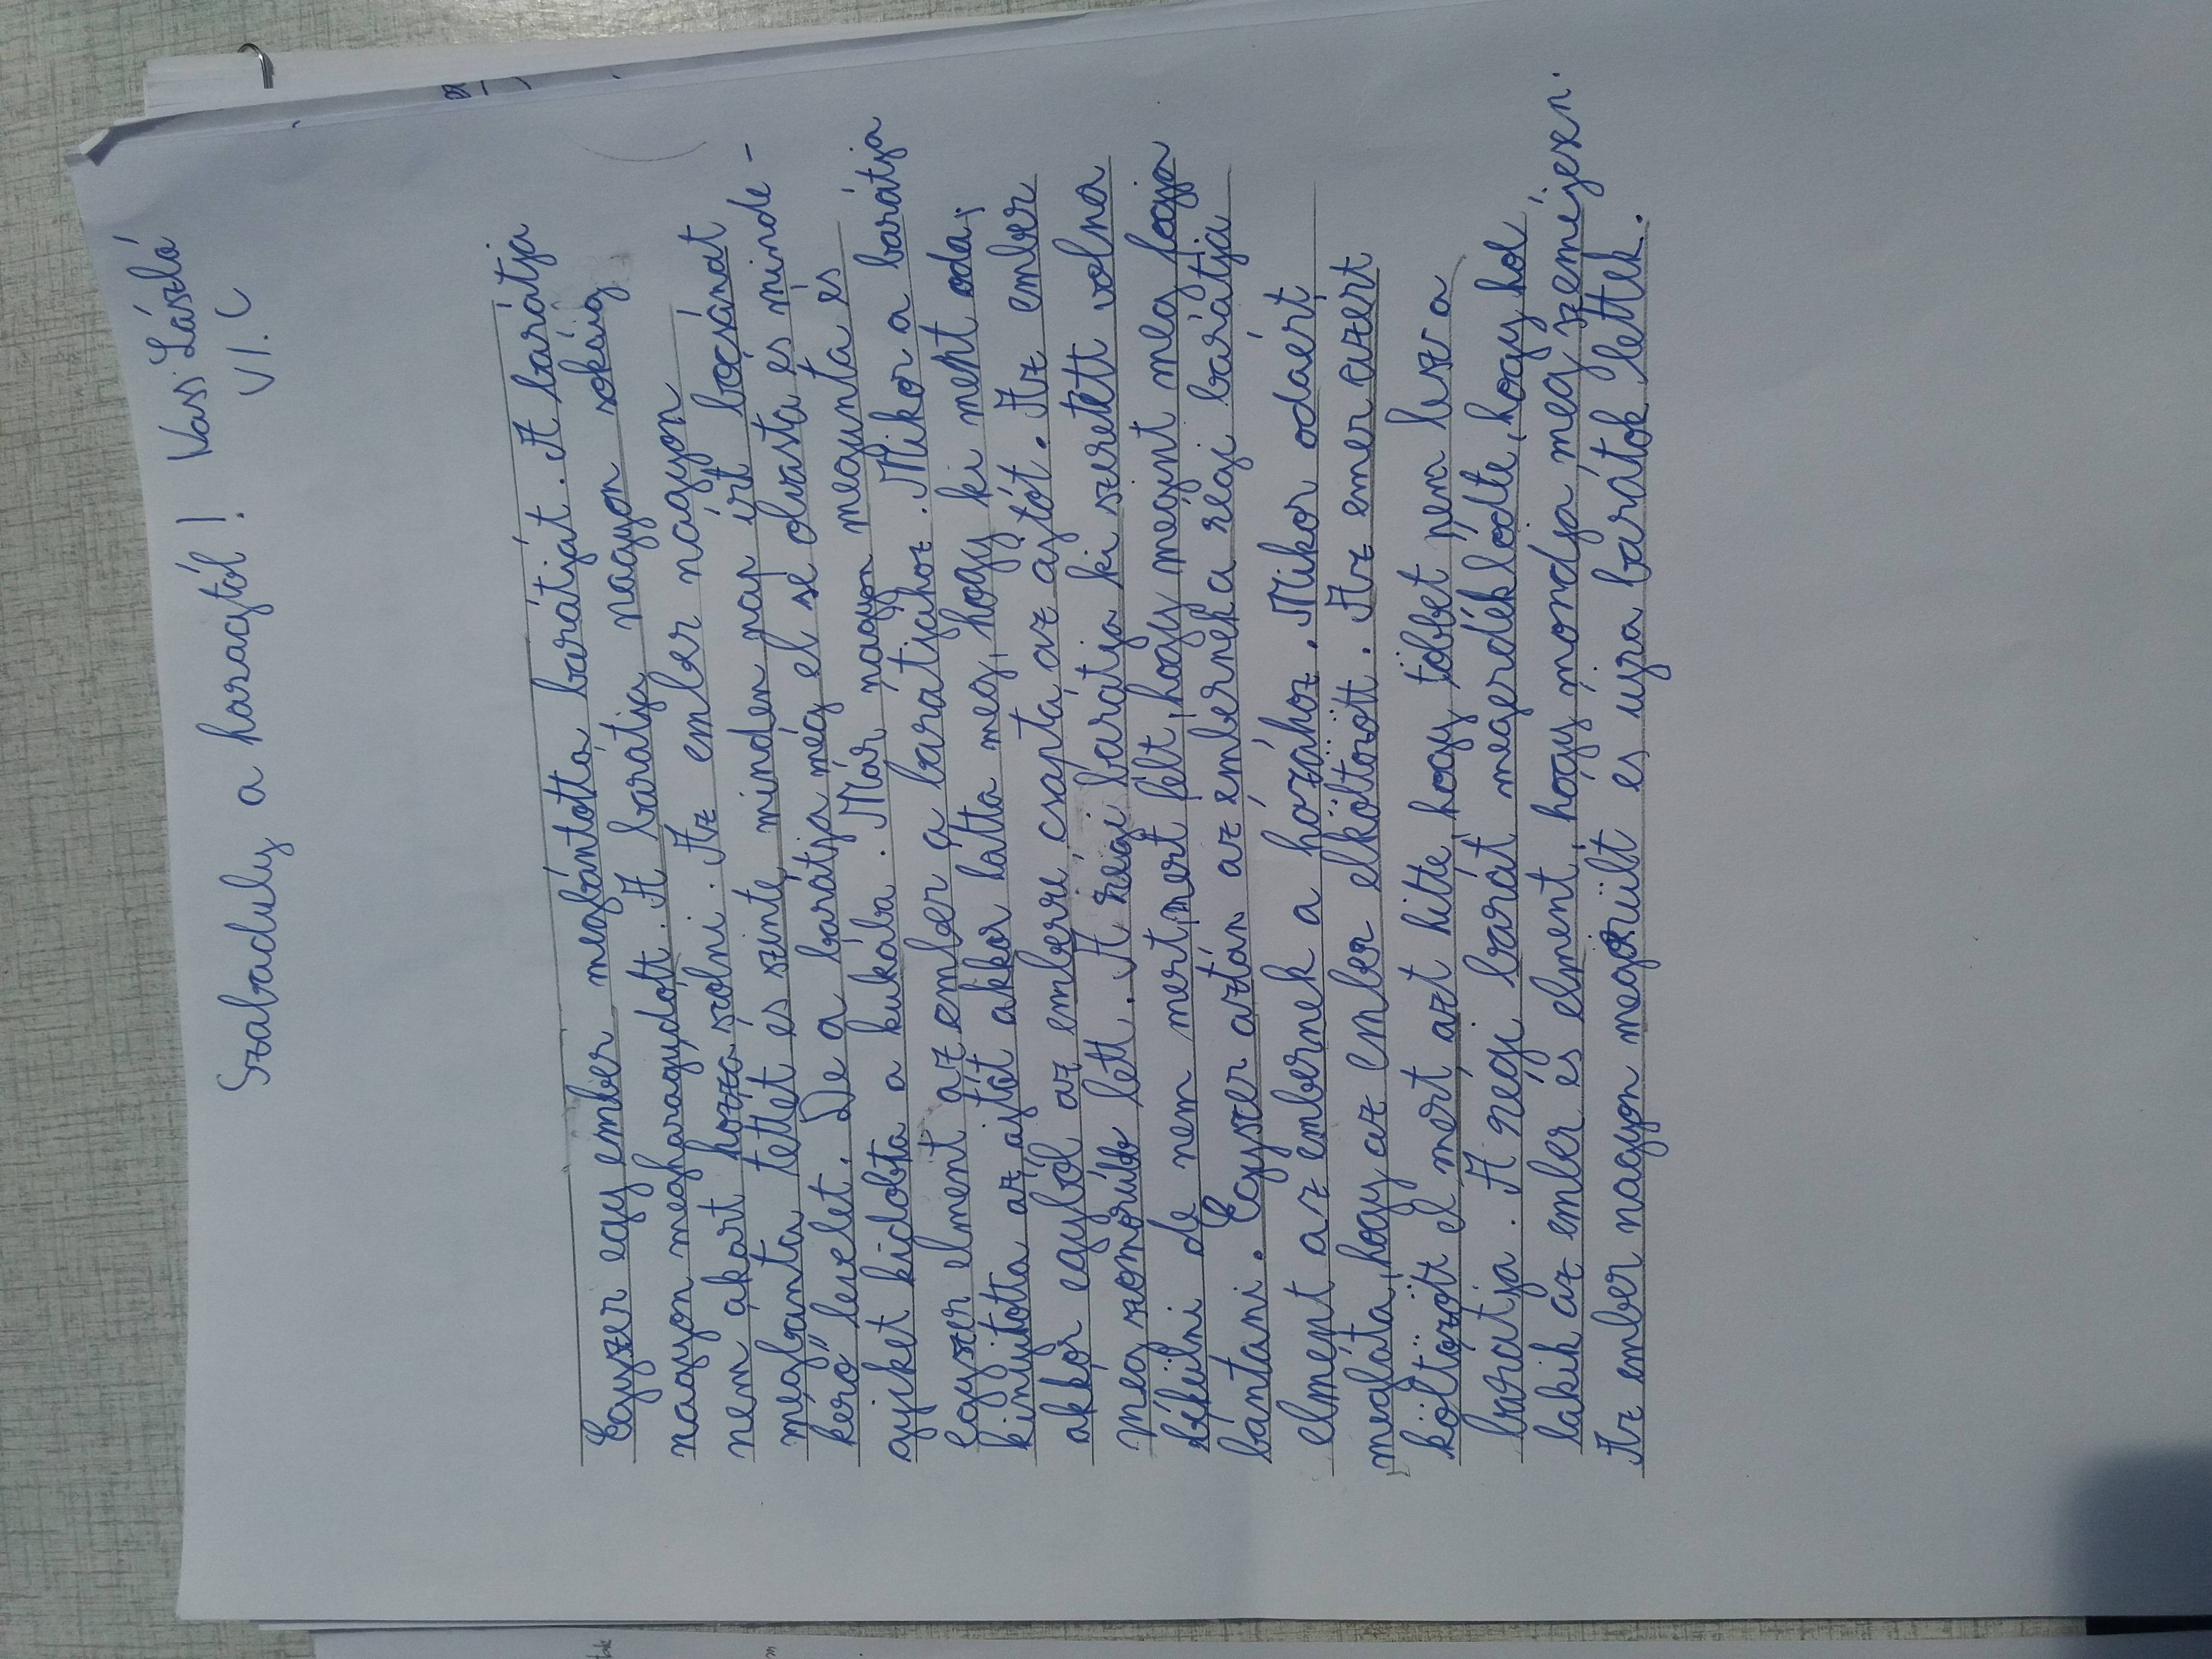 Szabadulj a haragtól! Vass László
VI. C
Egyszer egy ember megbántotta barátját. A barátja
nagyon megharagudott. A barátja nagyon sokáig
nem akart hozzá szólni. Az ember nagyon
megbánta tettét és szinte minden nap írt bocsánat
kérő levelet. De a barátja még el se olvasta és minde-
gyiket kidobta a kukába. Már nagyon megunta és
egyszer elment az ember a barátjához. Mikor a barátja
kinyitotta az ajtót akkor látta meg, hogy ki ment oda,
akkor egyből az emberre csapta az ajtót. Az ember
még szomorúbb lett. A régi barátja ki szeretett volna
békülni de nem mert, mert félt, hogy megint meg fogja
bántani. Egyszer aztán az embernek a régi barátja
elment az embernek a házához. Mikor odaért
meglátta, hogy az ember elköltözött. Az ember azért
költözött el mert azt hitte, hogy többet nem lesz a
barátja. A régi barát megérdeklődte, hogy hol
lakik az ember és elment, hogy mondja meg személyesen.
Az ember nagyon megörült és újra barátok lettek.